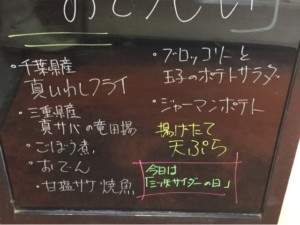 ・千葉県産
真いわしフライ
・三重県産
真サバの竜田揚
・ごぼう煮
・おでん
・甘塩サケ焼魚
・ブロッコリーと
玉子のポテトサラダ
・ジャーマンポテト
揚げたて
天ぷら
今日は
「三ツ矢サイダーの日」